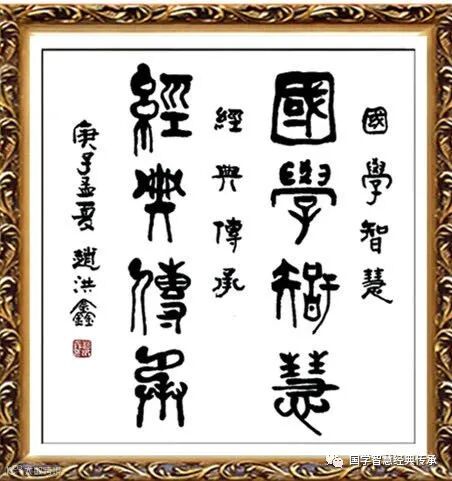 國學智慧
國學智慧
經典傳承
經典傳承
庚子孟夏 趙洪鑫
国学智慧经典传承